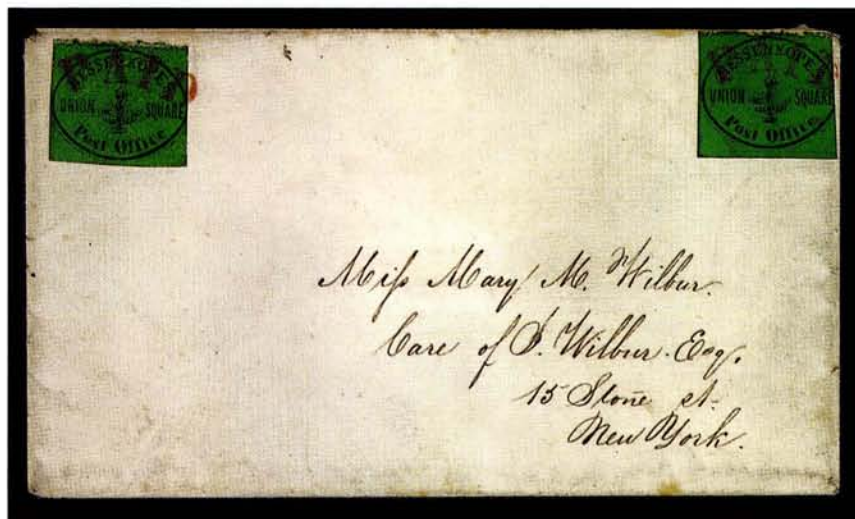 MESSENKOPE'S
UNION SQUARE
Post Office
PAID
MESSENKOPE'S
UNION SQUARE
Post Office
PAID
Miss Mary M. Wilbur.
Care of J. Wilbur. Esq.
15 Stone st.
New York.